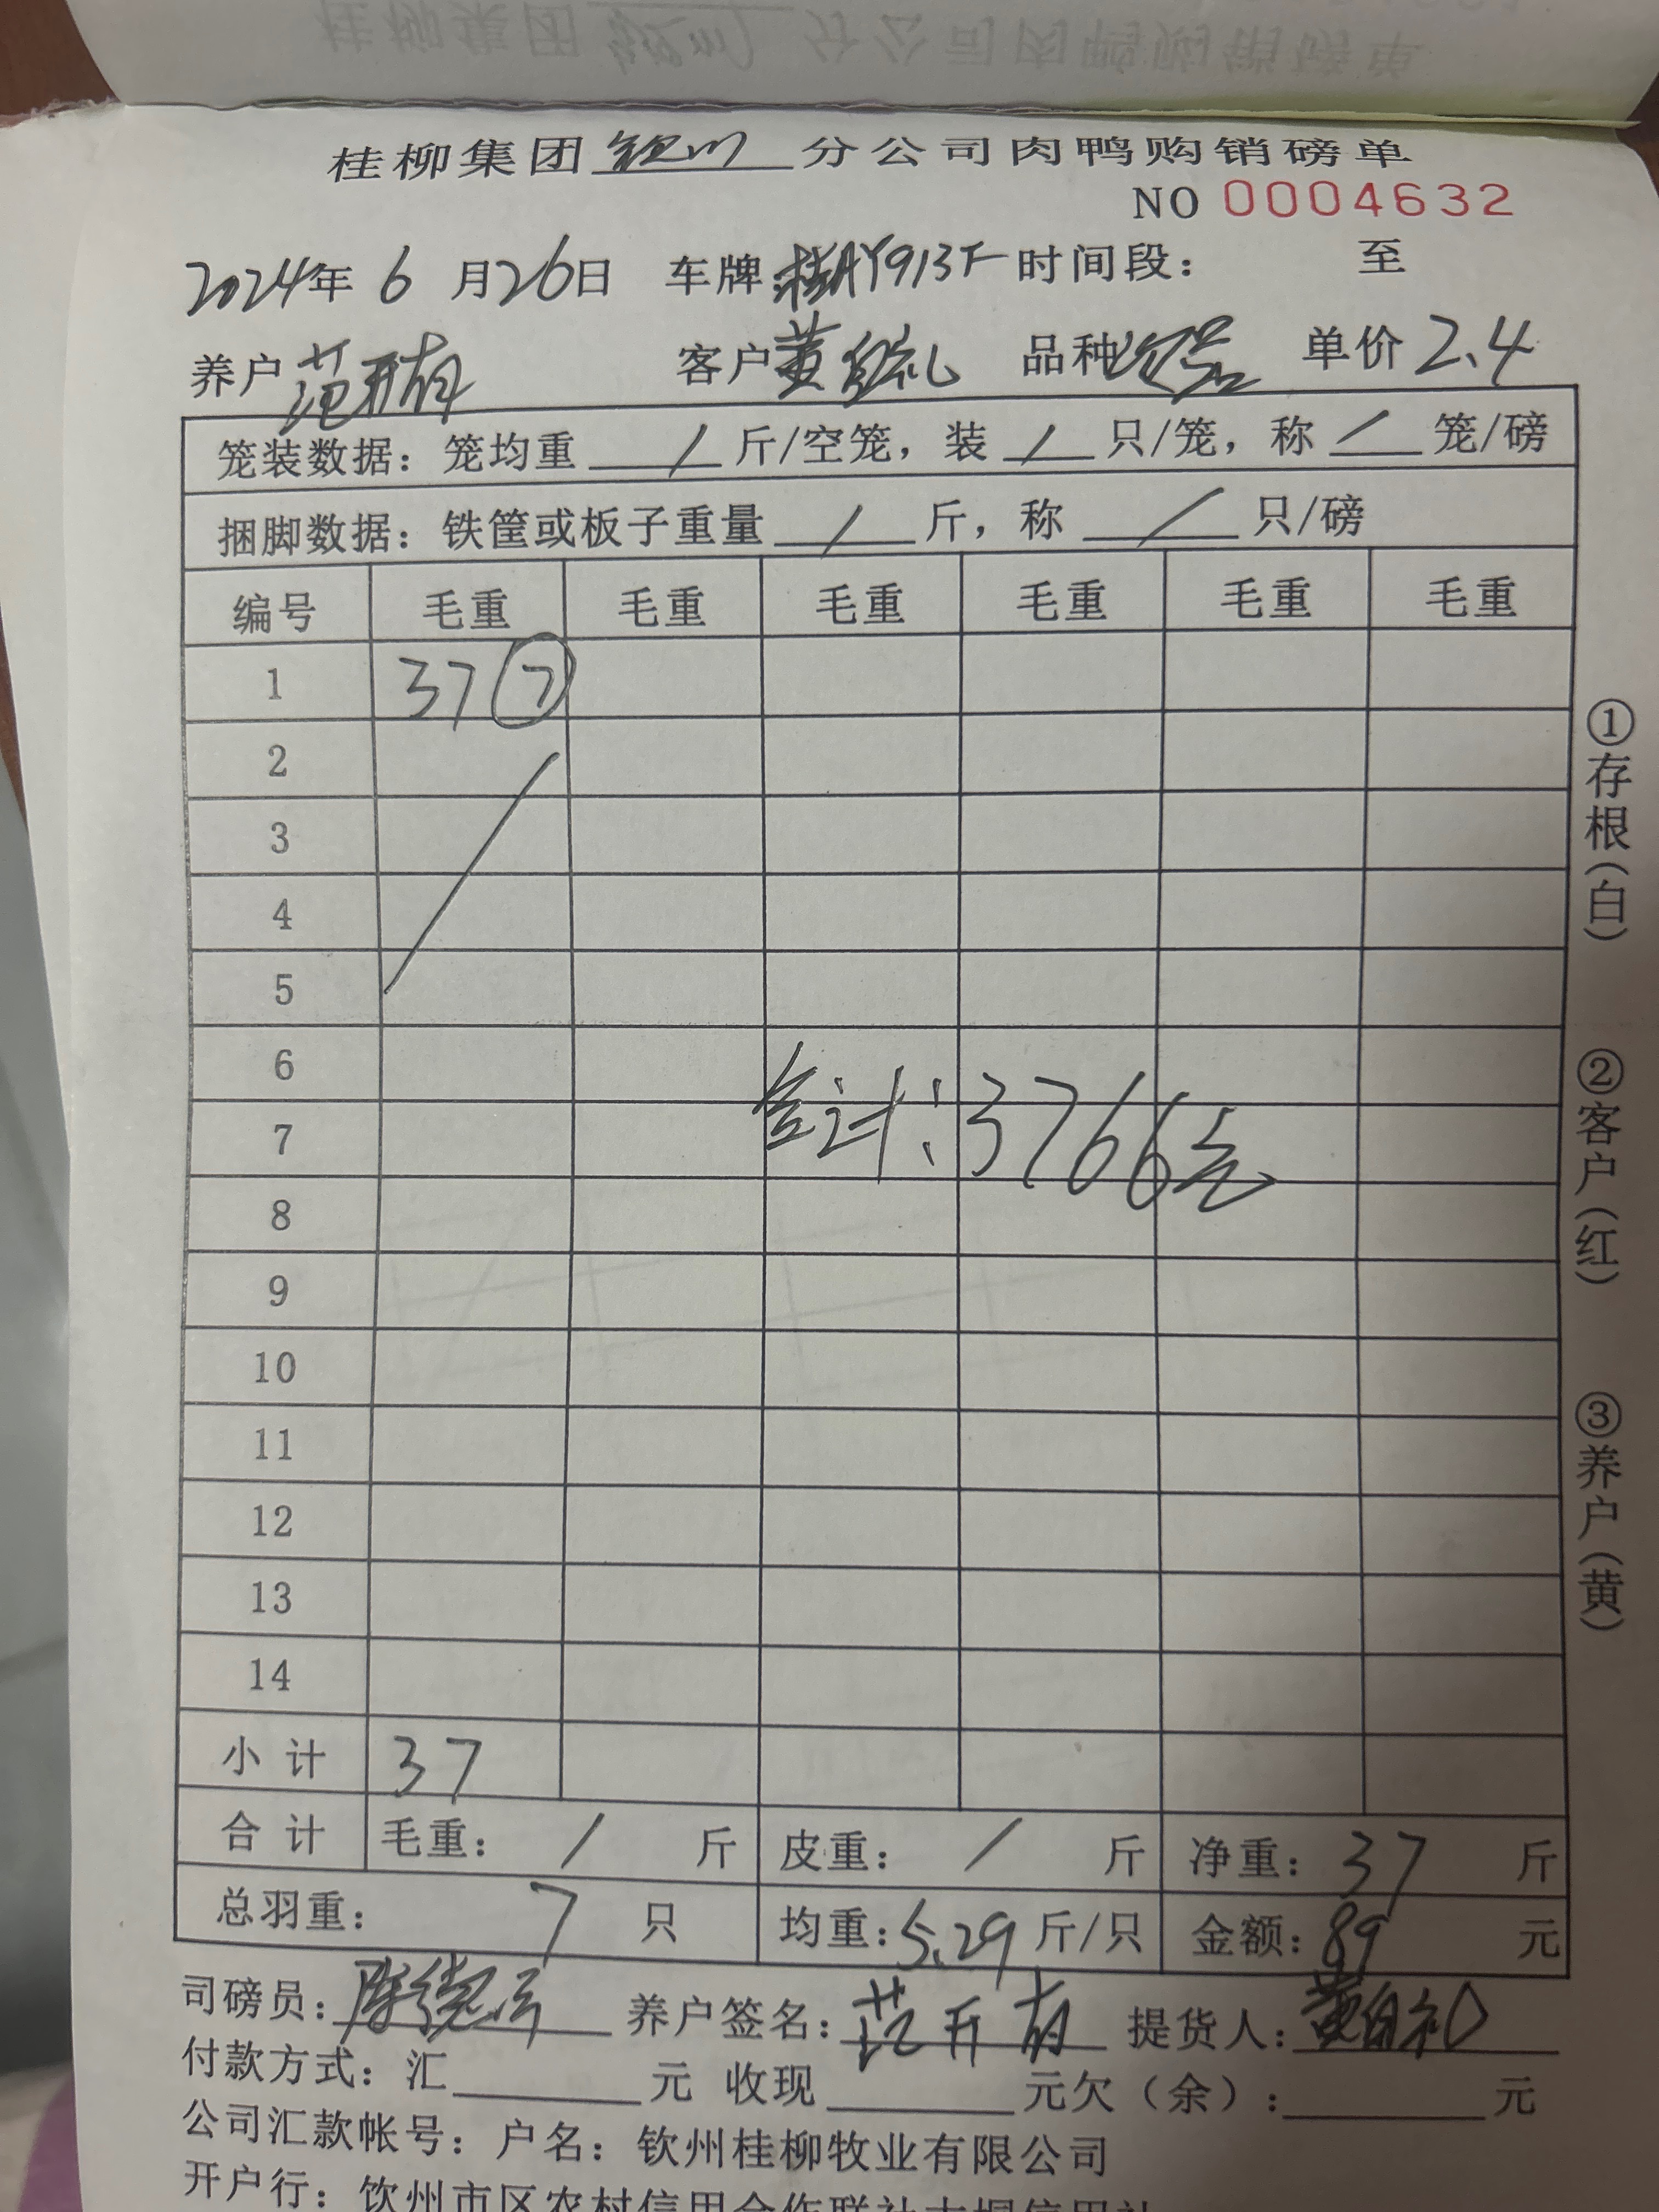 桂柳集团钦州分公司肉鸭购销磅单
NO 0004632
2024年 6 月26日 车牌:桂AY913F 时间段: 至
养户 范开有 客户 黄自礼 品种 次品 单价 2.4
笼装数据:笼均重 / 斤/空笼,装 / 只/笼,称 / 笼/磅
捆脚数据:铁筐或板子重量 / 斤,称 / 只/磅
编号 毛重 毛重 毛重 毛重 毛重 毛重
1 37 ⑦
2
3
4
5
6
7 合计:3766元
8
9
10
11
12
13
14
小计 37
合计 毛重: / 斤 皮重: / 斤 净重: 37 斤
总羽重: 7 只 均重:5.29斤/只 金额:89 元
司磅员: 养户签名:范开有 提货人:黄自礼
付款方式:汇 元 收现 元欠(余): 元
公司汇款帐号:户名:钦州桂柳牧业有限公司
开户行:钦州市区农村信用合作联社大垌信用社
①存根(白) ②客户(红) ③养户(黄)